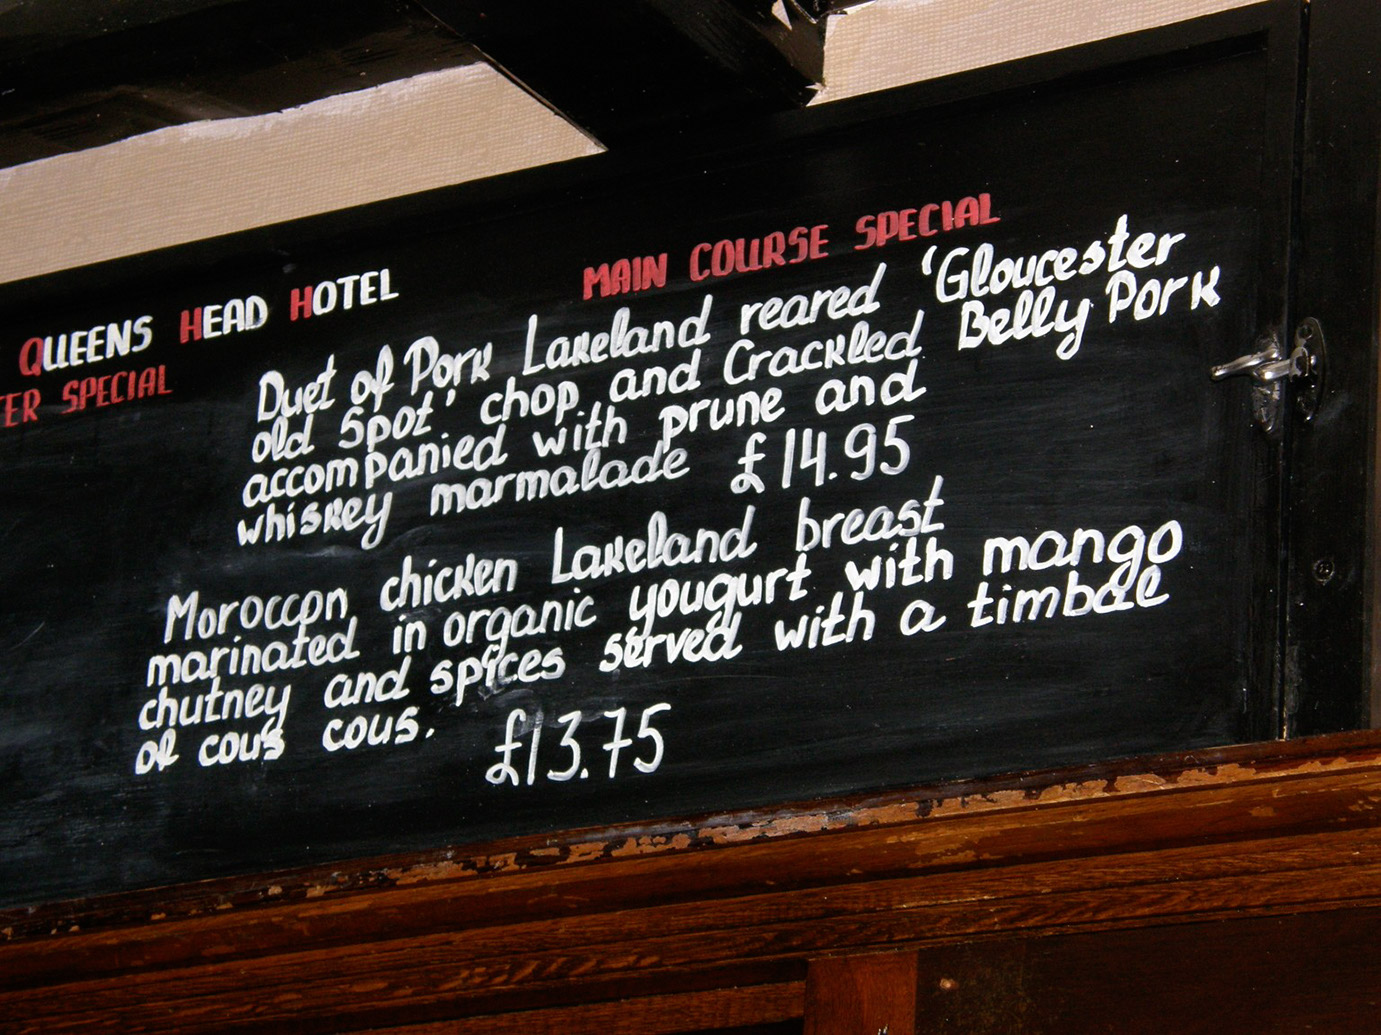 QUEENS HEAD HOTEL
TER SPECIAL
MAIN COURSE SPECIAL
Duet of Pork Lakeland reared 'Gloucester
old Spot' chop and Crackled Belly Pork
accompanied with prune and
whiskey marmalade £14.95
Moroccon chicken Lakeland breast
marinated in organic yougurt with mango
chutney and spices served with a timbale
of cous cous.
£13.75